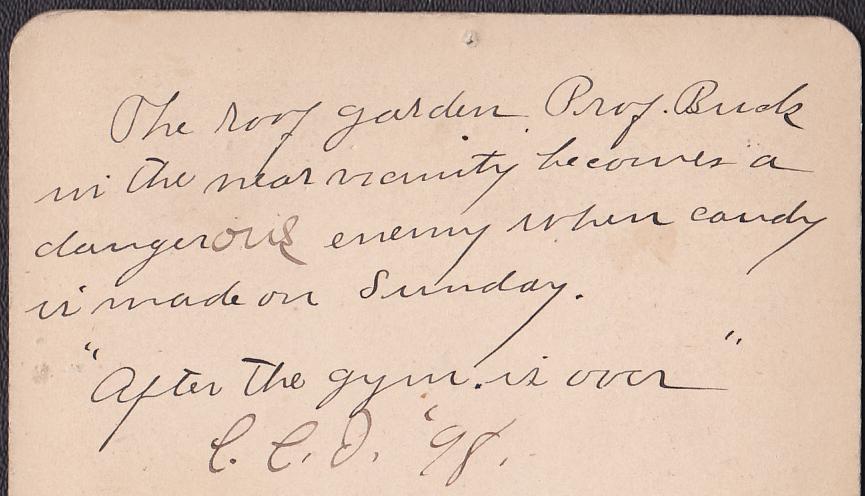 The roof garden. Prof. Buck
in the near vicinity becomes a
dangerous enemy when candy
is made on Sunday.
"After the gym. is over"
C. C. D. '98.